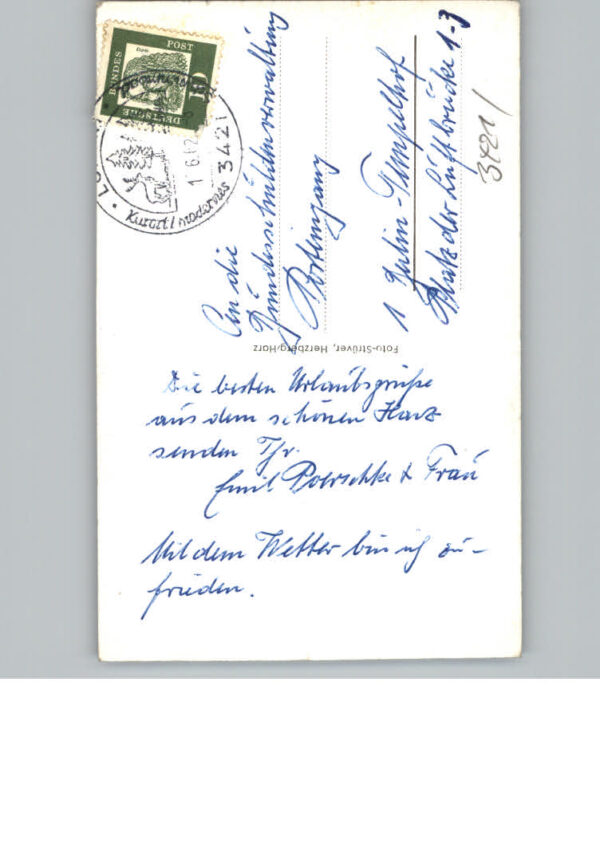 Dürer
DEUTSCHE
BUNDES
POST
10
Kurort/modernes
3421
1.6.62
An die
Bundesschuldenverwaltung
Posteingang
1 Berlin-Tempelhof
Platz der Luftbrücke 1-3
3421/
Foto-Strüver, Herzberg/Harz
Die besten Urlaubsgrüße
aus dem schönen Harz
senden Ihr.
Emil Poerschke & Frau
Mit dem Wetter bin ich zu-
frieden.